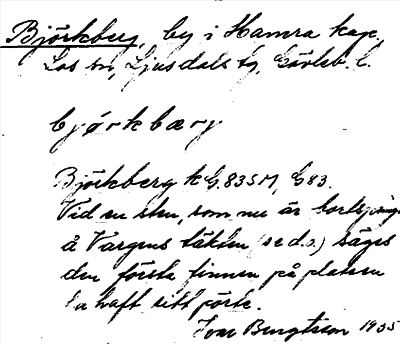 Björkberg, by i Hamra kap.,
Los sn, Ljusdals tg, Gävleb. l.
björkbærj
Björkberg k G.835M, G83.
Vid en sten, som nu är bortsprängd
å Vargens täkten (se d.o.) säges
den förste finnen på platsen
ha haft sitt pörte.
Ivar Bengtsson 1935